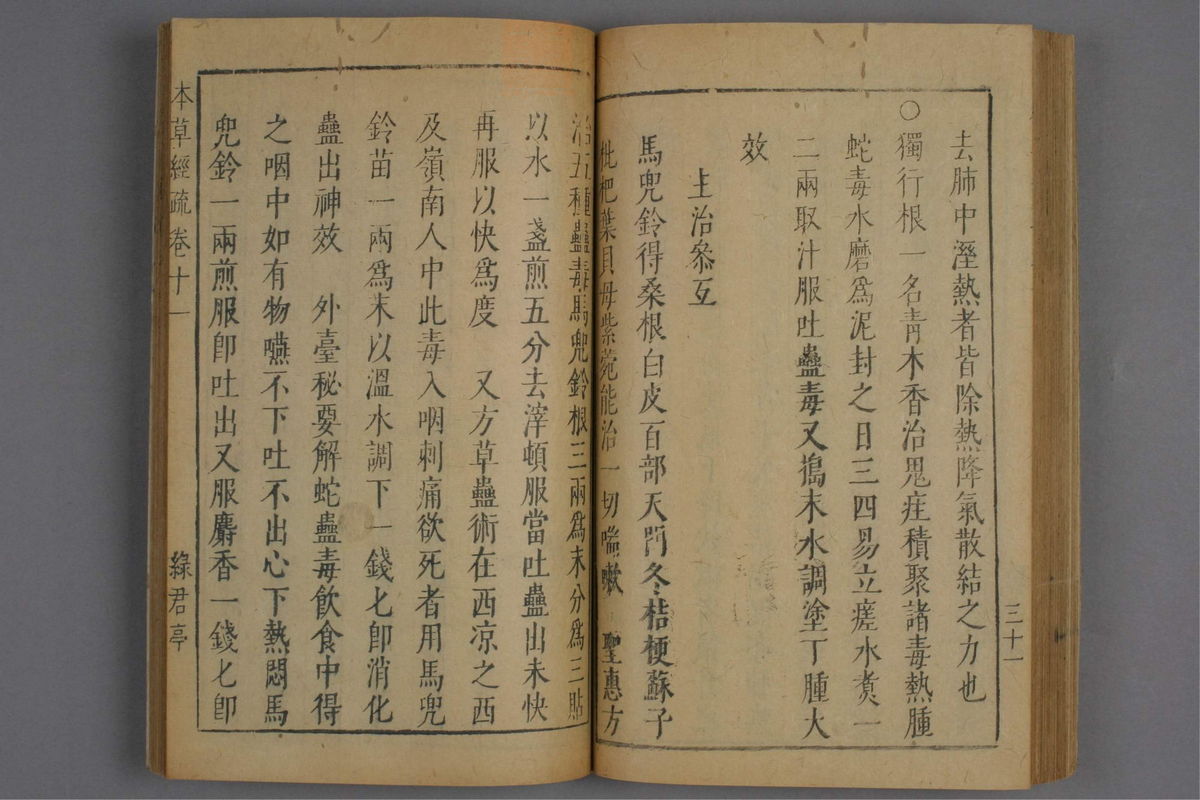 三十一
去肺中溼熱者皆除熱降氣散結之力也
〇獨行根一名靑木香治鬼疰積聚諸毒熱腫
蛇毒水磨爲泥封之日三四易立瘥水煑一
二兩取汁服吐蠱毒又搗末水調塗丁腫大
效
主治叅互
馬兜鈴得桑根白皮百部天門冬桔梗蘇子
枇杷葉貝母紫菀能治一切喘嗽 聖惠方
治五種蠱毒馬兜鈴根三兩爲末分爲三貼
以水一盞煎五分去滓頓服當吐蠱出未快
再服以快爲度 又方草蠱術在西凉之西
及嶺南人中此毒入咽刺痛欲死者用馬兜
鈴苗一兩爲末以溫水調下一錢匕卽消化
蠱出神效 外臺秘要解蛇蠱毒飮食中得
之咽中如有物嚥不下吐不出心下熱悶馬
兜鈴一兩煎服卽吐出又服麝香一錢匕卽
本草經疏 卷十一 綠君亭